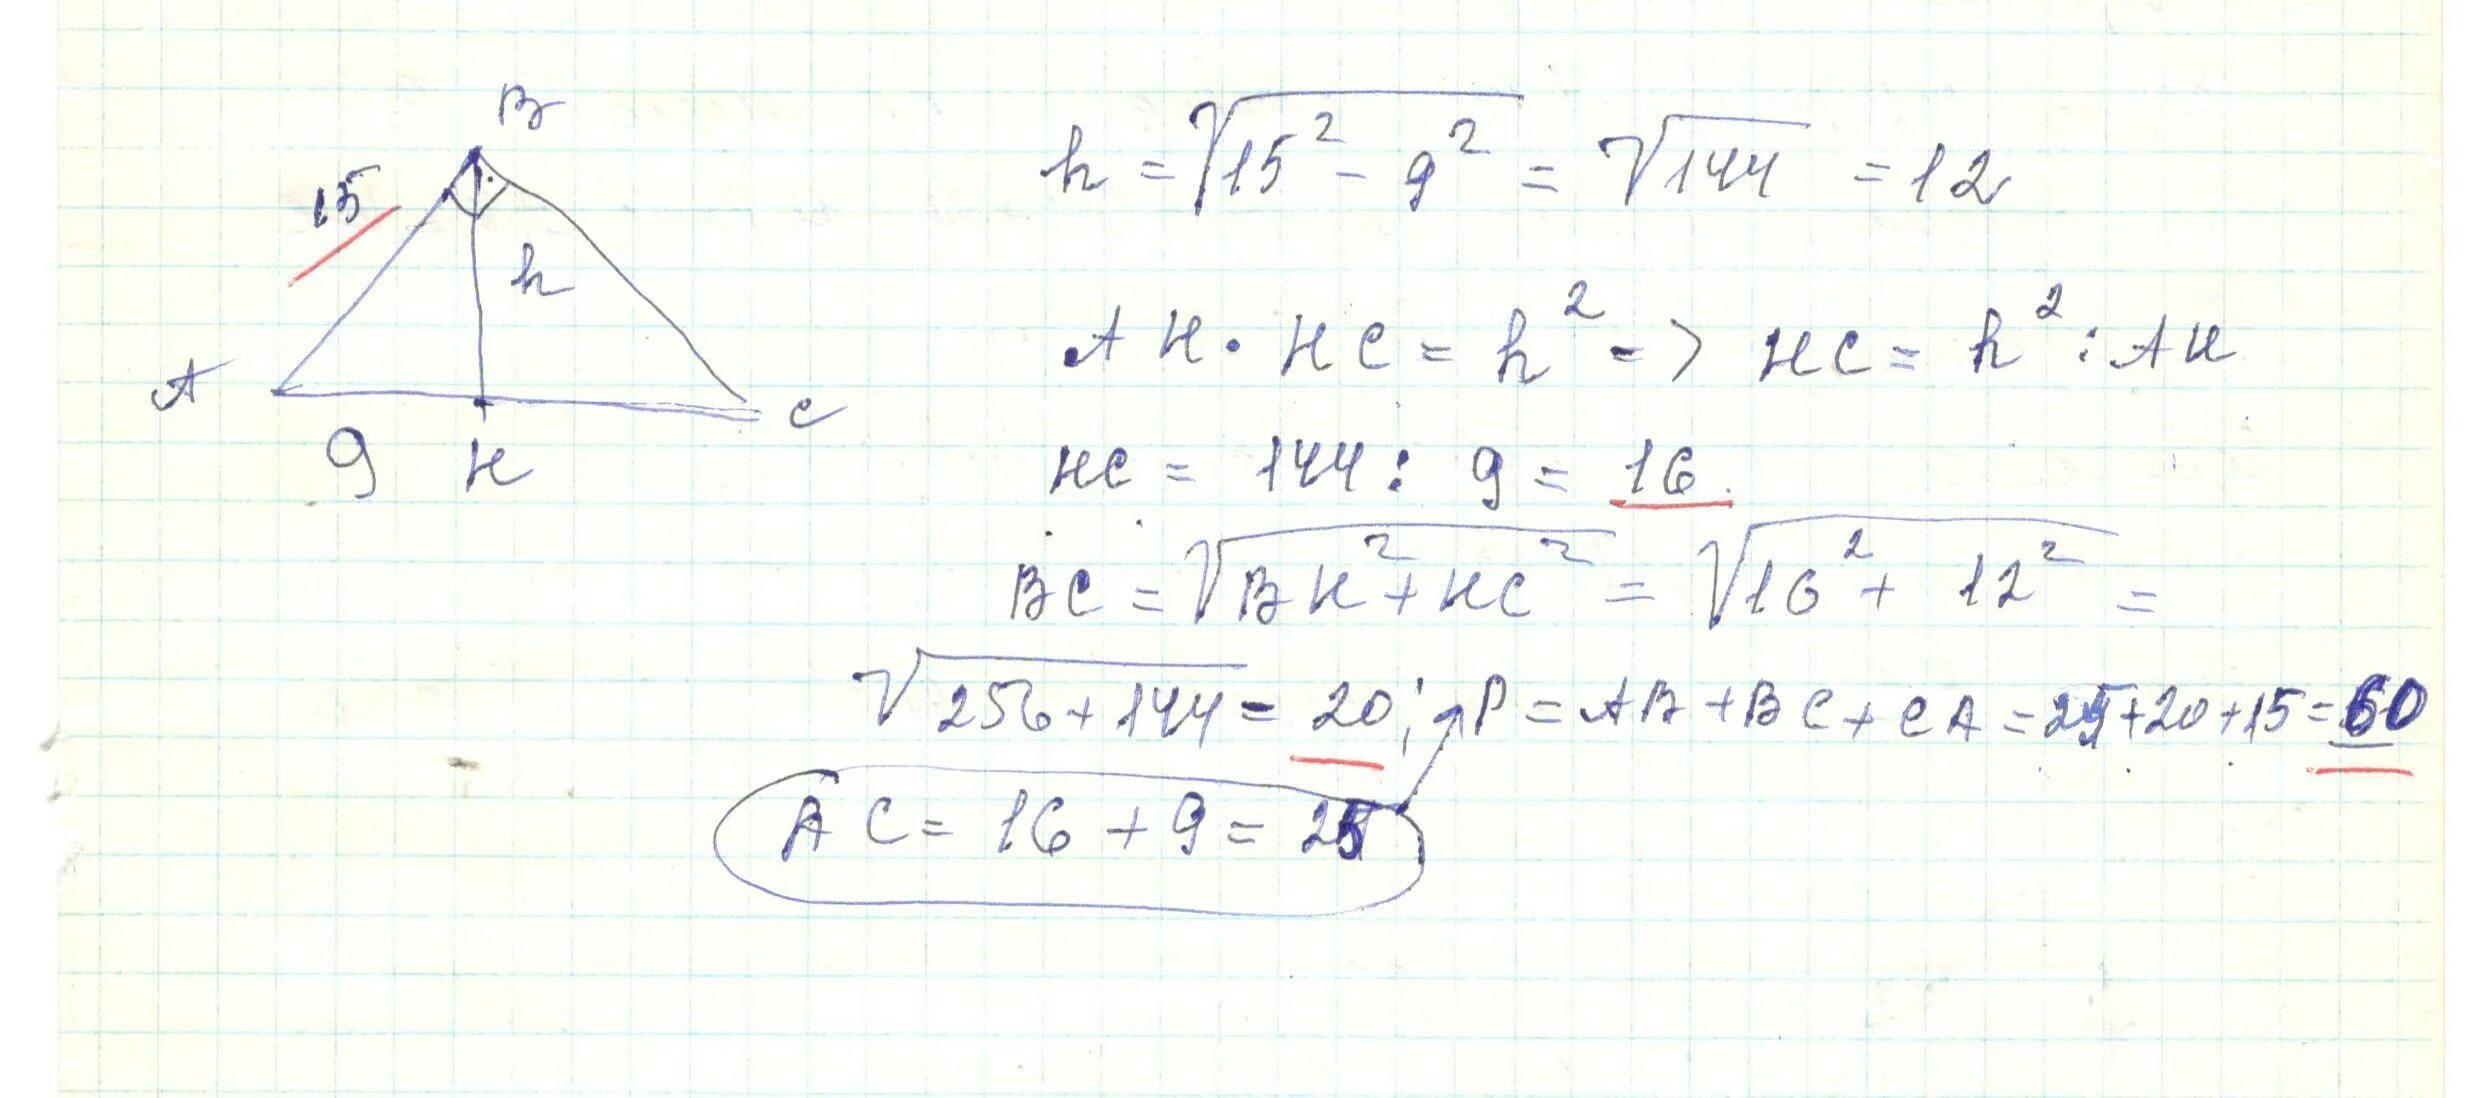 B
15
h
A
C
9 H
h = √15² - 9² = √144 = 12
AH · HC = h² => HC = h² : AH
HC = 144 : 9 = 16.
BC = √BH² + HC² = √16² + 12² =
√256 + 144 = 20; P = AB + BC + CA = 25 + 20 + 15 = 60
AC = 16 + 9 = 25